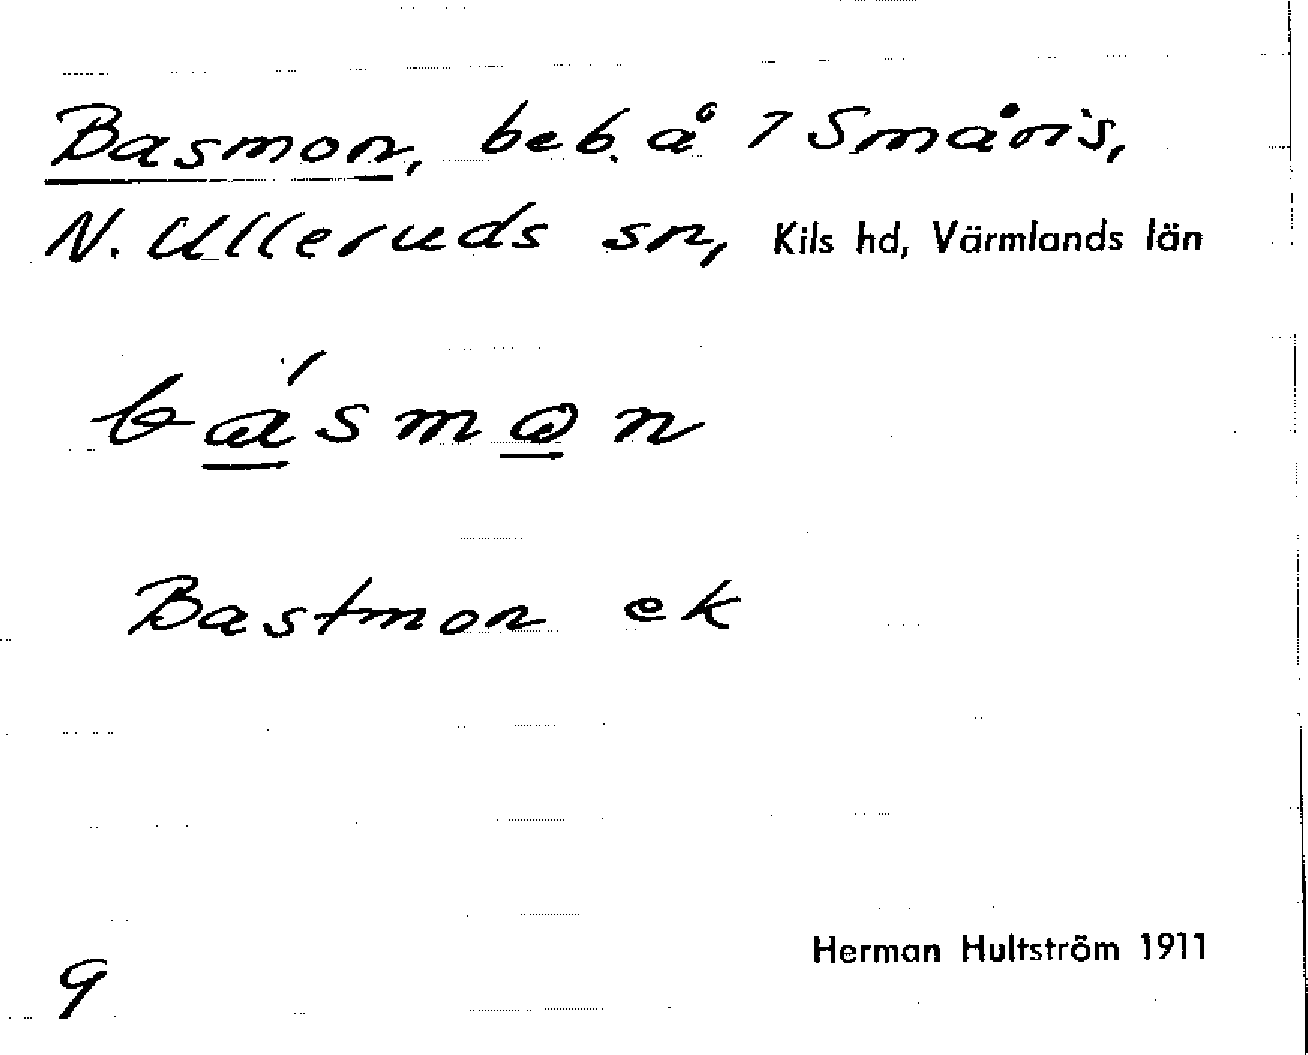 Basmon, beb. å 7 Småris,
N. Ulleruds sn, Kils hd, Värmlands län
básmon
Bastmon ek
Herman Hultström 1911
9